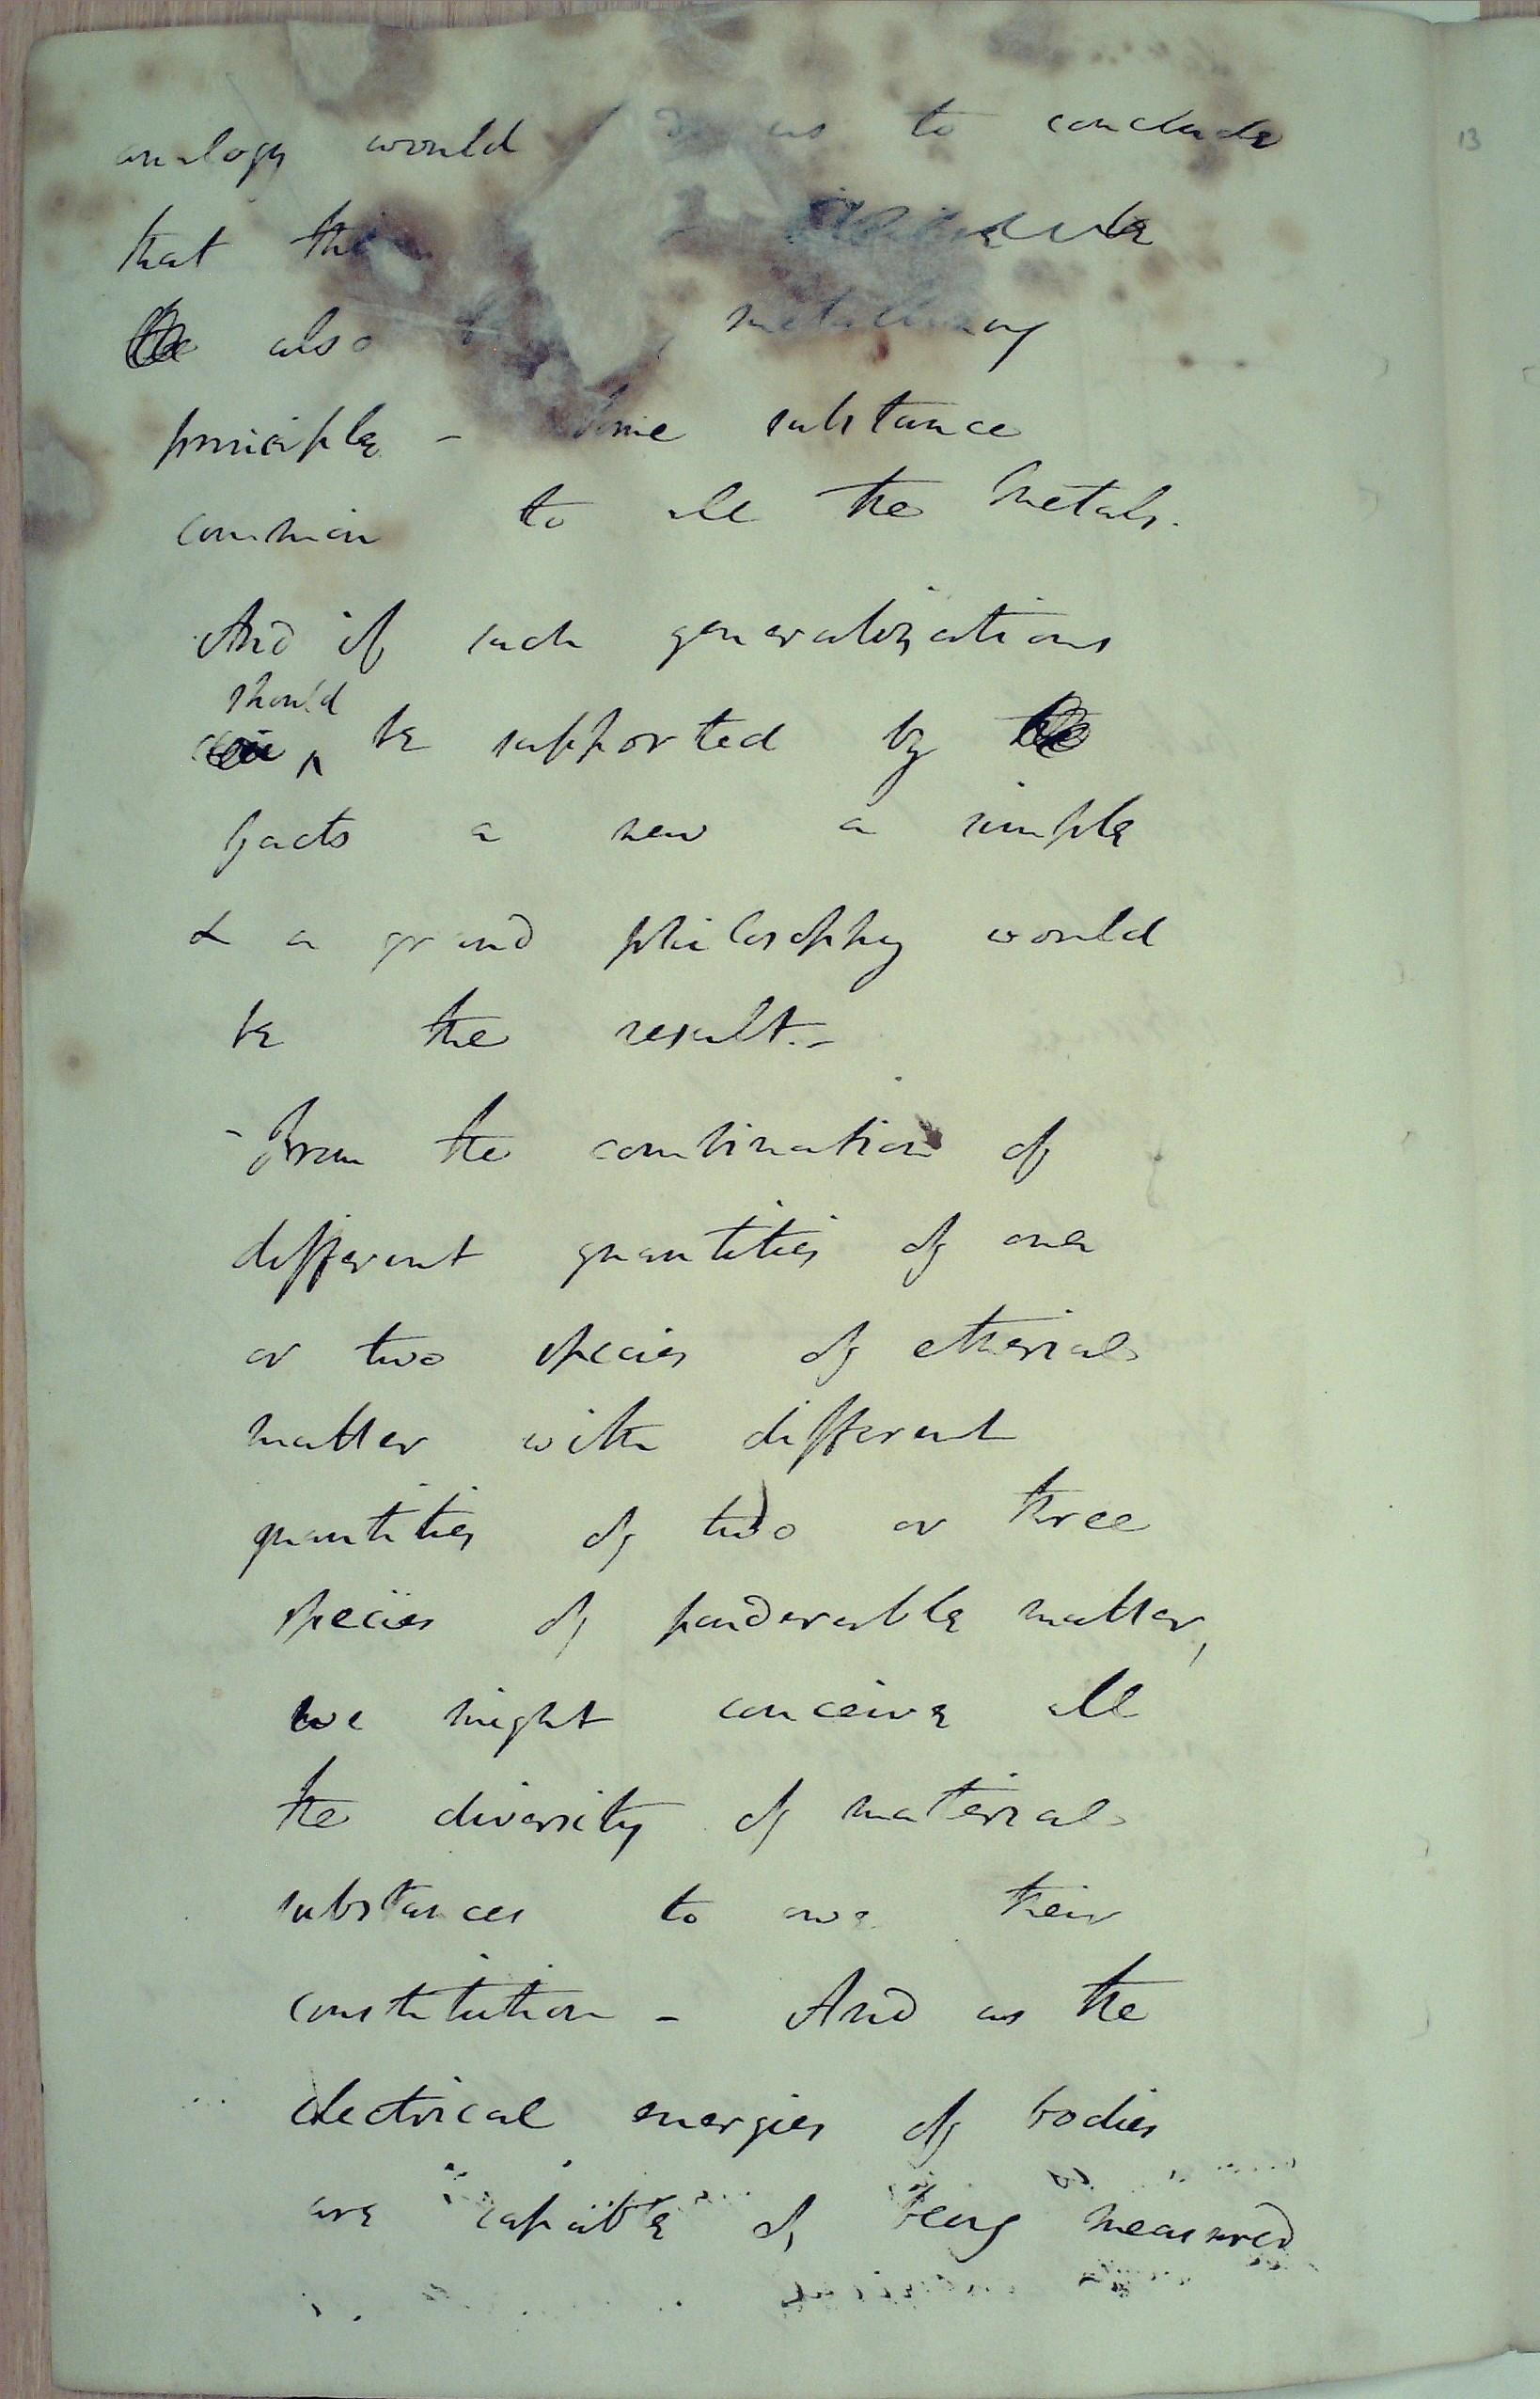 analogy would us to conclude
that the
also
principle - some substance
common to all the Metals.
And if such generalizations
should
be supported by
facts a new a simple
& a grand philosophy would
be the result. -
- From the combination of
different quantities of one
or two species of etherial
matter with different
quantities of two or three
species of ponderable matter,
we might conceive all
the diversity of material
substances to owe their
constitution - And as the
electrical energies of bodies
are capable of being measured
13